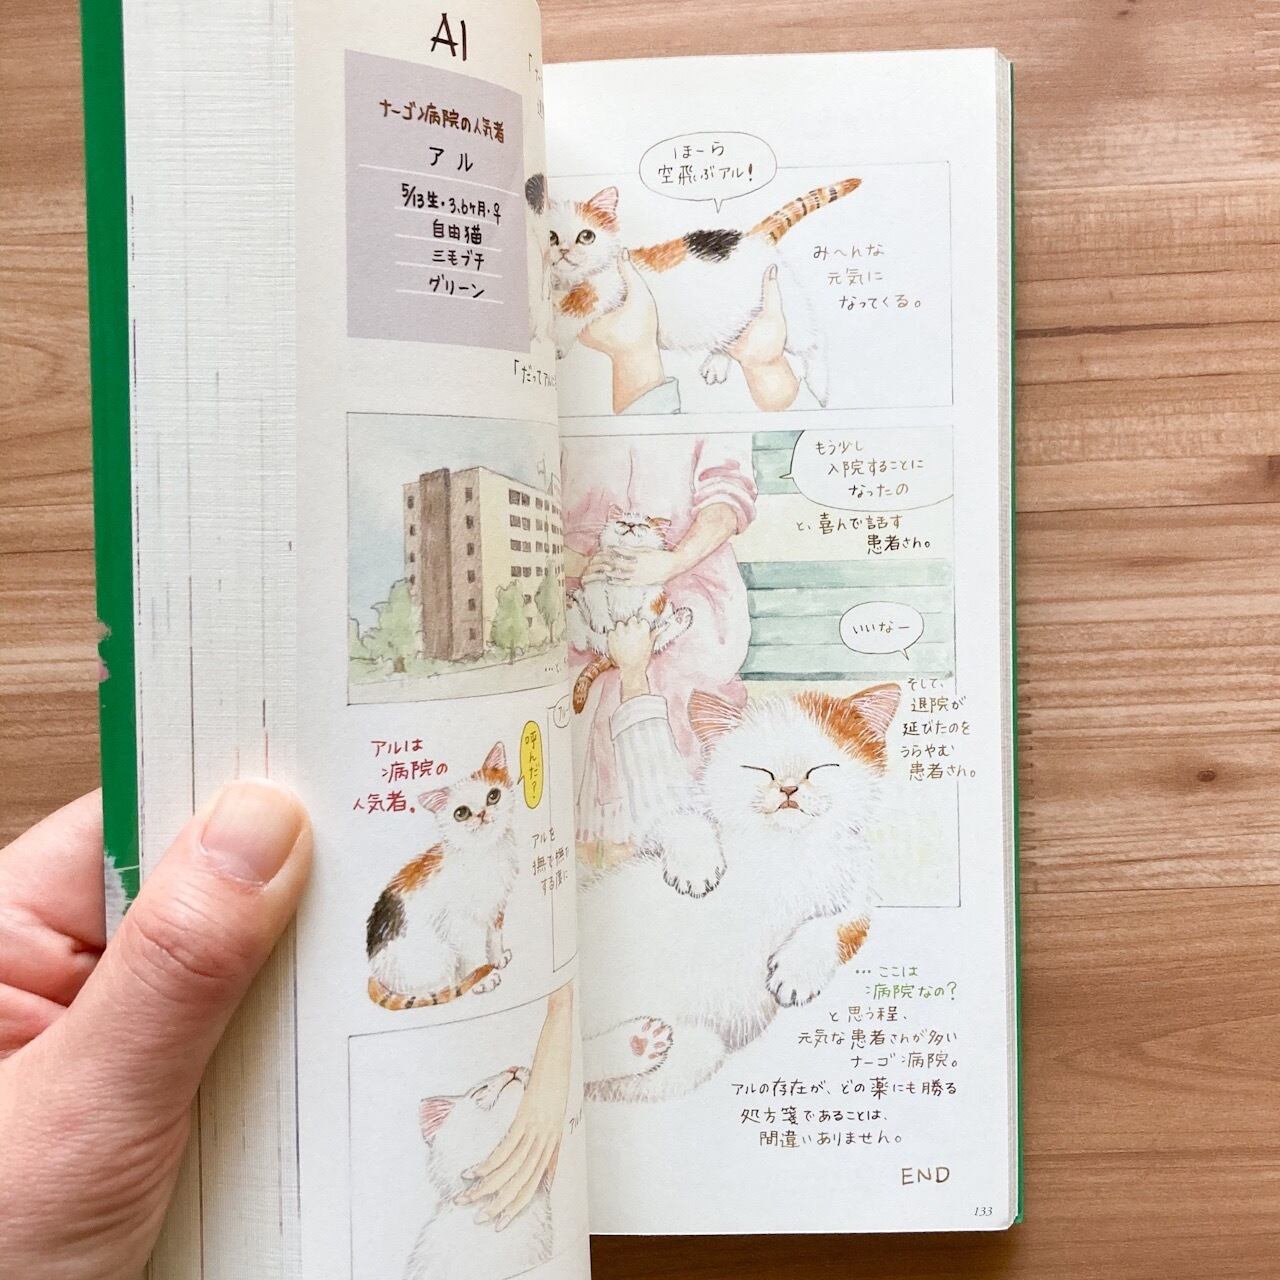 Al
ナーゴ病院の人気者
アル
5/13生・3.6ヶ月・♀
自由猫
三毛ブチ
グリーン
「だってアル
アルは
病院の
人気者。
呼んだ?
アルを
する度に
ほーら
空飛ぶアル!
み〜んな
元気に
なってくる。
もう少し
入院することに
なったの
と、喜んで話す
患者さん。
いいなー
そして、
退院が
延びたのを
うらやむ
患者さん。
…ここは
病院なの?
と思う程、
元気な患者さんが多い
ナーゴ病院。
アルの存在が、どの薬にも勝る
処方箋であることは、
間違いありません。
END
133